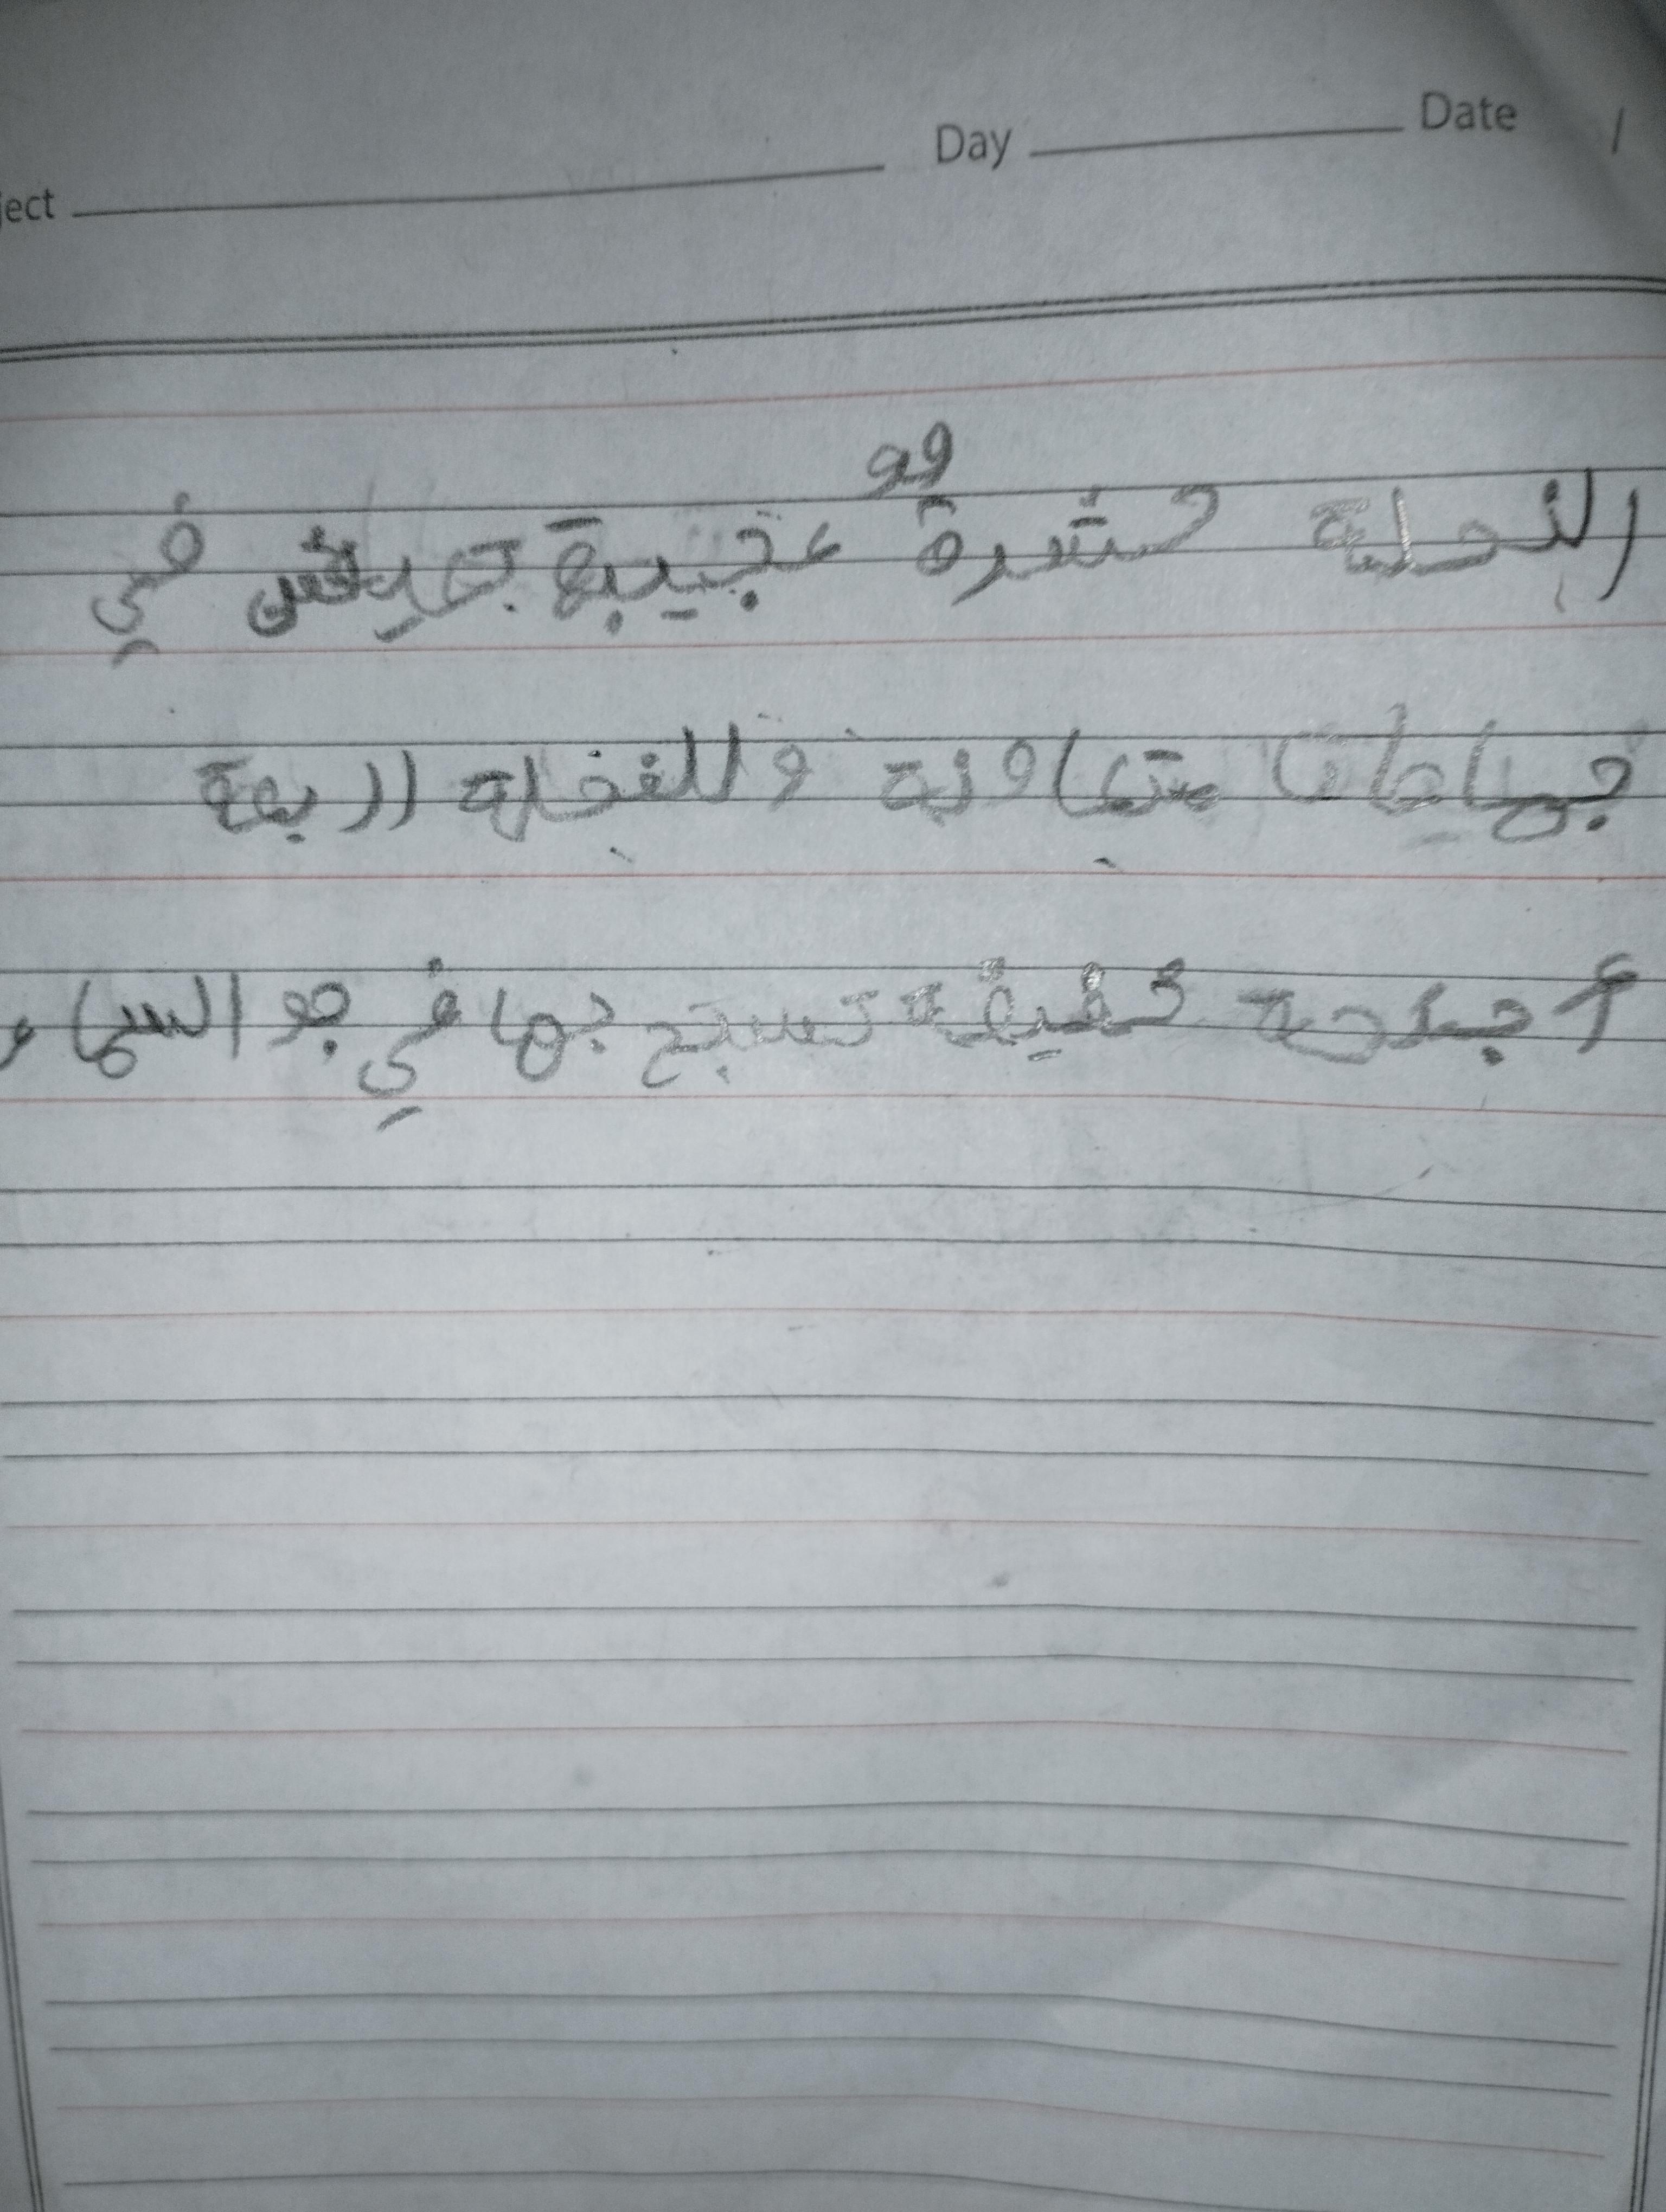 ject Day Date /
النحلة حشرة عجيبة تعيش في
جماعات متعاونة وللنخلة اربعة
أجنحة خفيفة تسبح بها في جو السماء